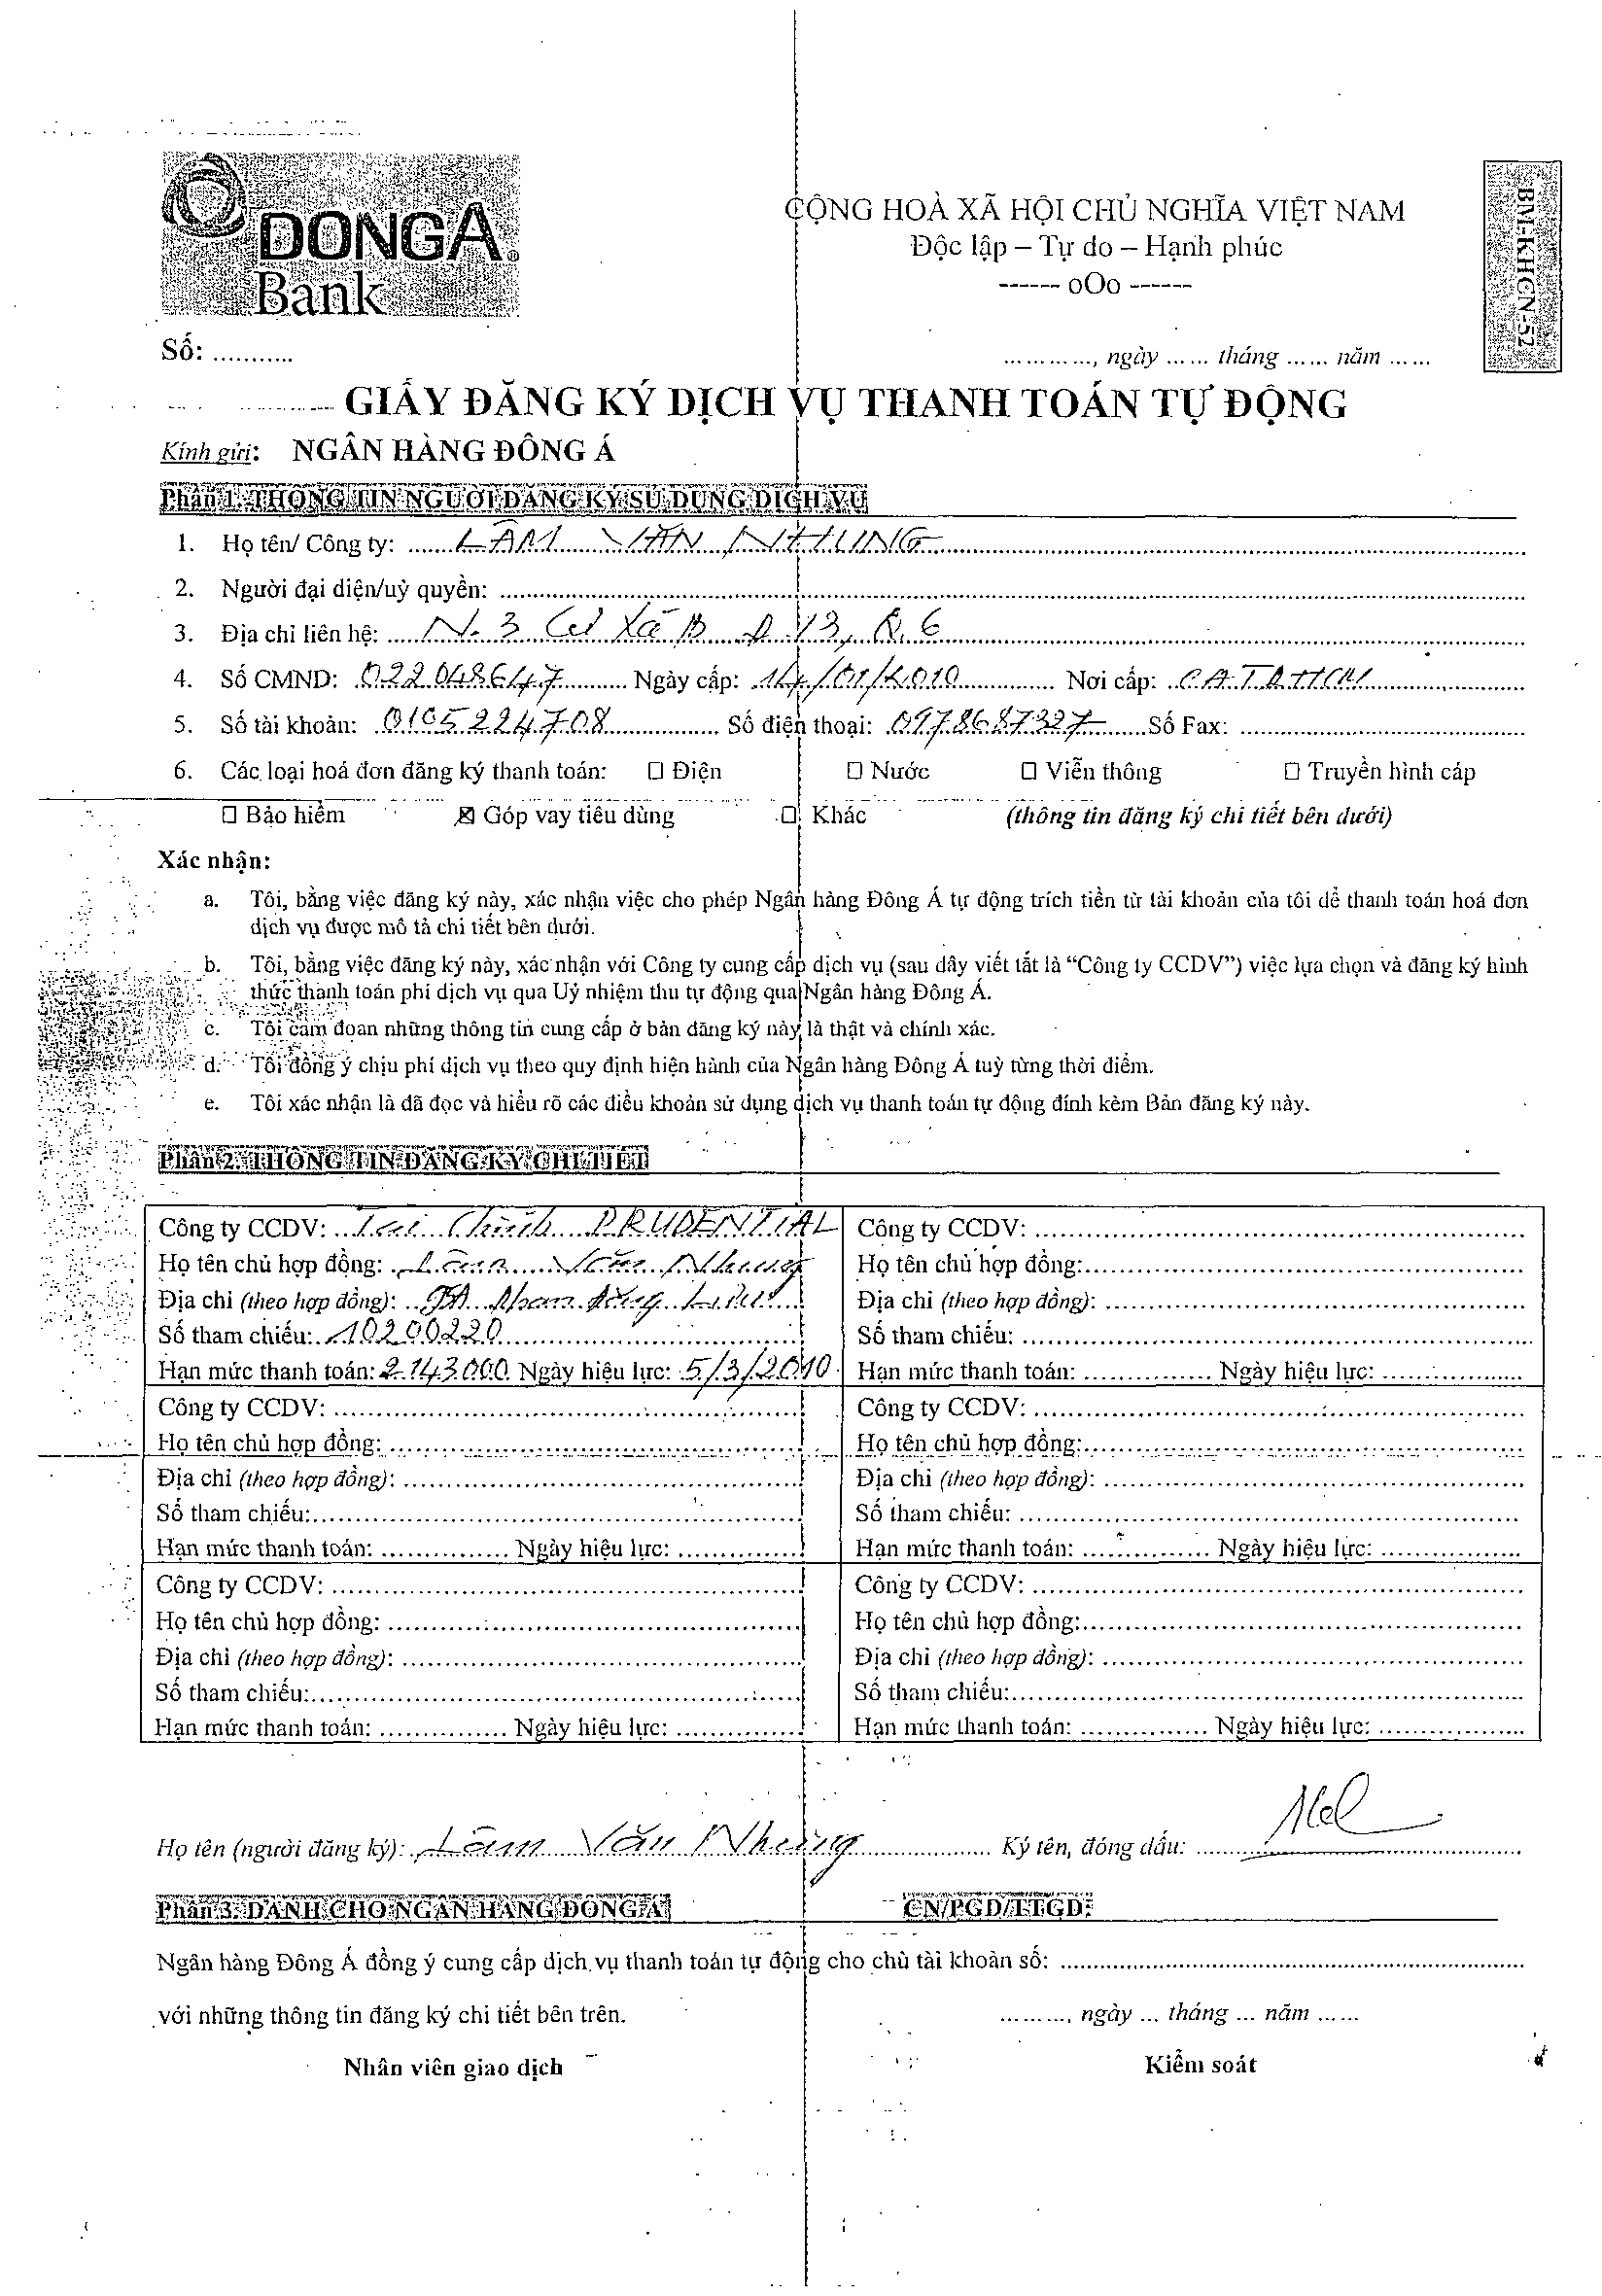 DONGA
Bank
CỘNG HOÀ XÃ HỘI CHỦ NGHĨA VIỆT NAM
Độc lập – Tự do – Hạnh phúc
------ oOo ------
BM-KHCN-52
Số: ...........
............, ngày ...... tháng ...... năm ......
GIẤY ĐĂNG KÝ DỊCH VỤ THANH TOÁN TỰ ĐỘNG
Kính gửi: NGÂN HÀNG ĐÔNG Á
Phần 1. THÔNG TIN NGƯỜI ĐĂNG KÝ SỬ DỤNG DỊCH VỤ
1. Họ tên/ Công ty: LÂM VĂN NHUNG
2. Người đại diện/uỷ quyền: ..........
3. Địa chỉ liên hệ: N.3 Cư Xá B P 13, Q.6
4. Số CMND: 022048647 Ngày cấp: 14/01/2010 Nơi cấp: CA TP HCM
5. Số tài khoản: 0105224708 Số điện thoại: 0978687327 Số Fax: ..........
6. Các loại hoá đơn đăng ký thanh toán: ☐ Điện ☐ Nước ☐ Viễn thông ☐ Truyền hình cáp
☐ Bảo hiểm ☒ Góp vay tiêu dùng ☐ Khác (thông tin đăng ký chi tiết bên dưới)
Xác nhận:
a. Tôi, bằng việc đăng ký này, xác nhận việc cho phép Ngân hàng Đông Á tự động trích tiền từ tài khoản của tôi để thanh toán hoá đơn
dịch vụ được mô tả chi tiết bên dưới.
b. Tôi, bằng việc đăng ký này, xác nhận với Công ty cung cấp dịch vụ (sau đây viết tắt là “Công ty CCDV”) việc lựa chọn và đăng ký hình
thức thanh toán phí dịch vụ qua Uỷ nhiệm thu tự động qua Ngân hàng Đông Á.
c. Tôi cam đoan những thông tin cung cấp ở bản đăng ký này là thật và chính xác.
d. Tôi đồng ý chịu phí dịch vụ theo quy định hiện hành của Ngân hàng Đông Á tuỳ từng thời điểm.
e. Tôi xác nhận là đã đọc và hiểu rõ các điều khoản sử dụng dịch vụ thanh toán tự động đính kèm Bản đăng ký này.
Phần 2. THÔNG TIN ĐĂNG KÝ CHI TIẾT
Công ty CCDV: Tài Chính PRUDENTIAL
Họ tên chủ hợp đồng: Lâm Văn Nhung
Địa chỉ (theo hợp đồng):
Số tham chiếu: 10200220
Hạn mức thanh toán: 2.143.000 Ngày hiệu lực: 5/3/2010
Công ty CCDV: ..........
Họ tên chủ hợp đồng: ..........
Địa chỉ (theo hợp đồng): ..........
Số tham chiếu: ..........
Hạn mức thanh toán: .......... Ngày hiệu lực: ..........
Công ty CCDV: ..........
Họ tên chủ hợp đồng: ..........
Địa chỉ (theo hợp đồng): ..........
Số tham chiếu: ..........
Hạn mức thanh toán: .......... Ngày hiệu lực: ..........
Công ty CCDV: ..........
Họ tên chủ hợp đồng: ..........
Địa chỉ (theo hợp đồng): ..........
Số tham chiếu: ..........
Hạn mức thanh toán: .......... Ngày hiệu lực: ..........
Công ty CCDV: ..........
Họ tên chủ hợp đồng: ..........
Địa chỉ (theo hợp đồng): ..........
Số tham chiếu: ..........
Hạn mức thanh toán: .......... Ngày hiệu lực: ..........
Công ty CCDV: ..........
Họ tên chủ hợp đồng: ..........
Địa chỉ (theo hợp đồng): ..........
Số tham chiếu: ..........
Hạn mức thanh toán: .......... Ngày hiệu lực: ..........
Họ tên (người đăng ký): Lâm Văn Nhung Ký tên, đóng dấu: ..........
Phần 3. DÀNH CHO NGÂN HÀNG ĐÔNG Á CN/PGD/TTGD:
Ngân hàng Đông Á đồng ý cung cấp dịch vụ thanh toán tự động cho chủ tài khoản số: ..........
với những thông tin đăng ký chi tiết bên trên.
........., ngày ... tháng ... năm ......
Nhân viên giao dịch Kiểm soát